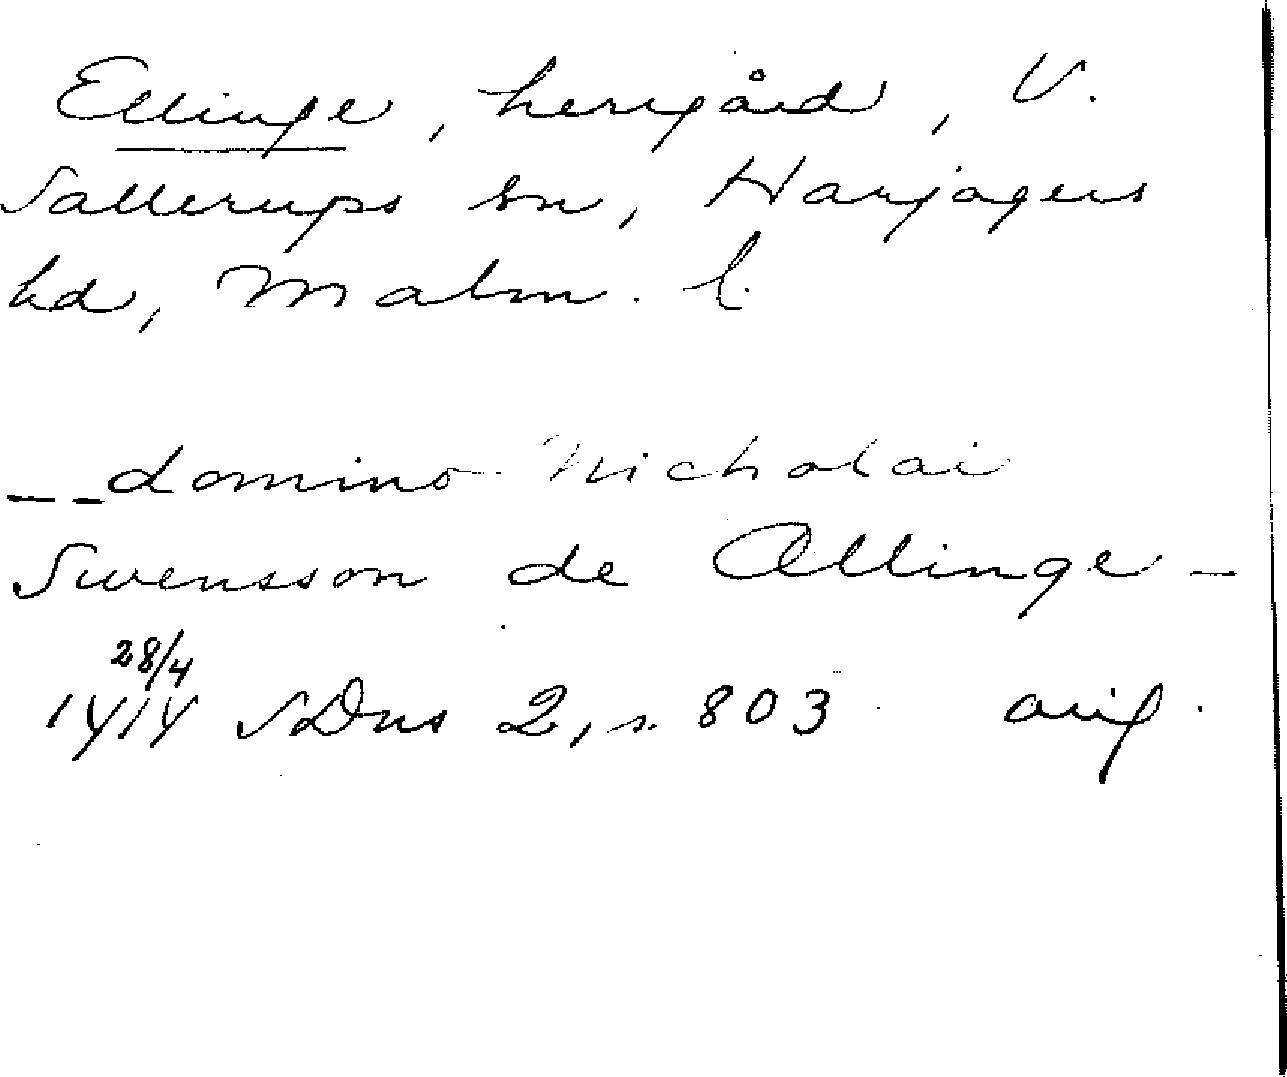 Ellinge, herrgård, V.
Sallerups sn, Harjagers
hd, Malm. l.
-- domino Nicholai
Swensson de Ællinge -
28/4
1414 SDns 2, s. 803 orig.